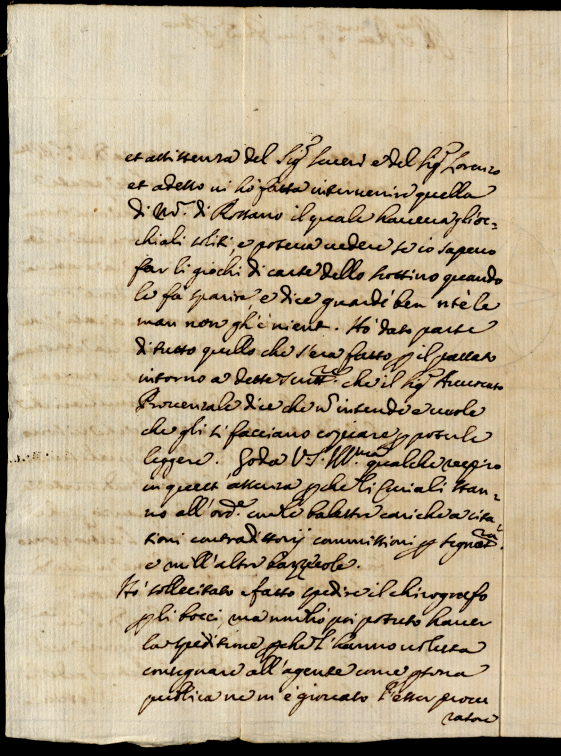 et assistenza del Sig.r Severi e del Sig.r Lorenzo
et adesso vi hò fatta intervenire quella
di M.r di Rossano il quale haveva gl'oc=
chiali soliti, e poteva vedere se io sapevo
far li giochi di carte dello
le fa sparire e dice guardè ben
man non gh'è nient. Hò dato parte
di tutto quello che s'era fatto p il passato
intorno a dette Scritt.re che il Sig.r Avvocato
Provenzale dice che n intende e vuole
che gli si facciano copiare p poterle
leggere. Goda V.S. Ill.ma qualche respiro
in quest assenza pche li Curiali stan=
no all'ord.e con le balestre cariche a cita=
tioni contradittorij commissioni p segnat.ra
e mill'altre bazzecole.
Hò sollecitato e fatto spedire il chirografo
p li bocci, ma non hò poi potuto haver
la speditione pche l'hanno volsuta
consegnare all'agente come psona
publica ne m'è giovato l'esser procu
ratore